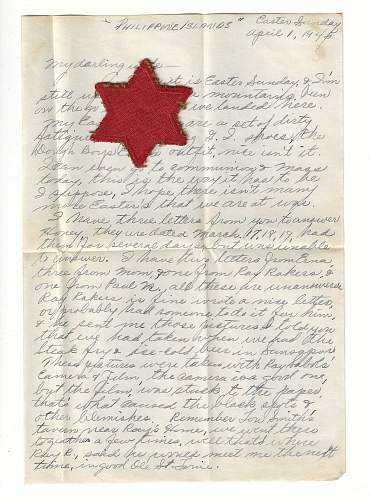 "PHILIPPINE ISLANDS" Easter Sunday
April 1, 1945
My darling wife —
it is Easter Sunday, & I'm
still the mountains, been
on the we landed here.
My are a set of dirty
fatigues G. I. shoes, the
Dough Boys outfit, nice isn't it.
I can even go to communion & mass
today, this is the way it has to be
I suppose, I hope there isn't many
more Easter's that we are at war.
I have three letters from you to answer
Honey, they are dated March 17, 18, 19, had
them for several days but was unable
to answer. I have two letters from Erna
three from mom, & one from Ray Rakers, &
one from Paul R., all these are unanswered
Ray Rakers is fine wrote a nice letter,
or probably had someone to do it for him,
& he sent me those pictures I told you
that we had taken when we had the
steak fry & ice-cold beer in
These pictures were taken with Ray
Camera & film. the camera was a good one,
but the film was stuck to the paper
that's what caused the black spots &
other blemishes. Remember Tom Smith's
tavern near Ray's Home, we went there
together a few times, well that's where
Ray R., said he would meet me the next
time, in good Ole St. Louie.